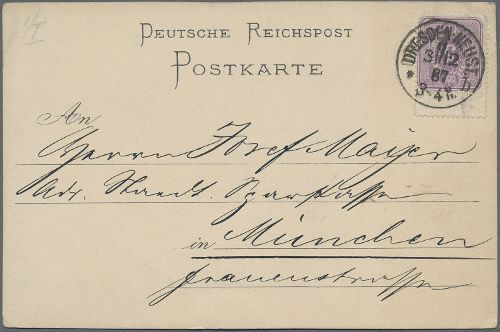 DEUTSCHE REICHSPOST
POSTKARTE
DRESDEN-NEUST.
3 12
87
3-4 N.
b
An
Herrn Josef Mayer
Adr. Staedt. Sparkasse
in München
Frauenstrasse